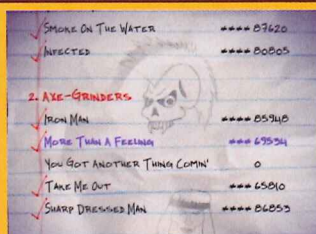 Smoke On The Water **** 87620
Infected **** 80805
2. Axe-Grinders
Iron Man **** 85948
More Than A Feeling *** 69534
You Got Another Thing Comin' 0
Take Me Out *** 65810
Sharp Dressed Man **** 86853